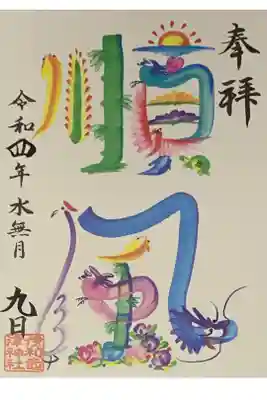 奉拝
順風
令和四年 水無月 九日